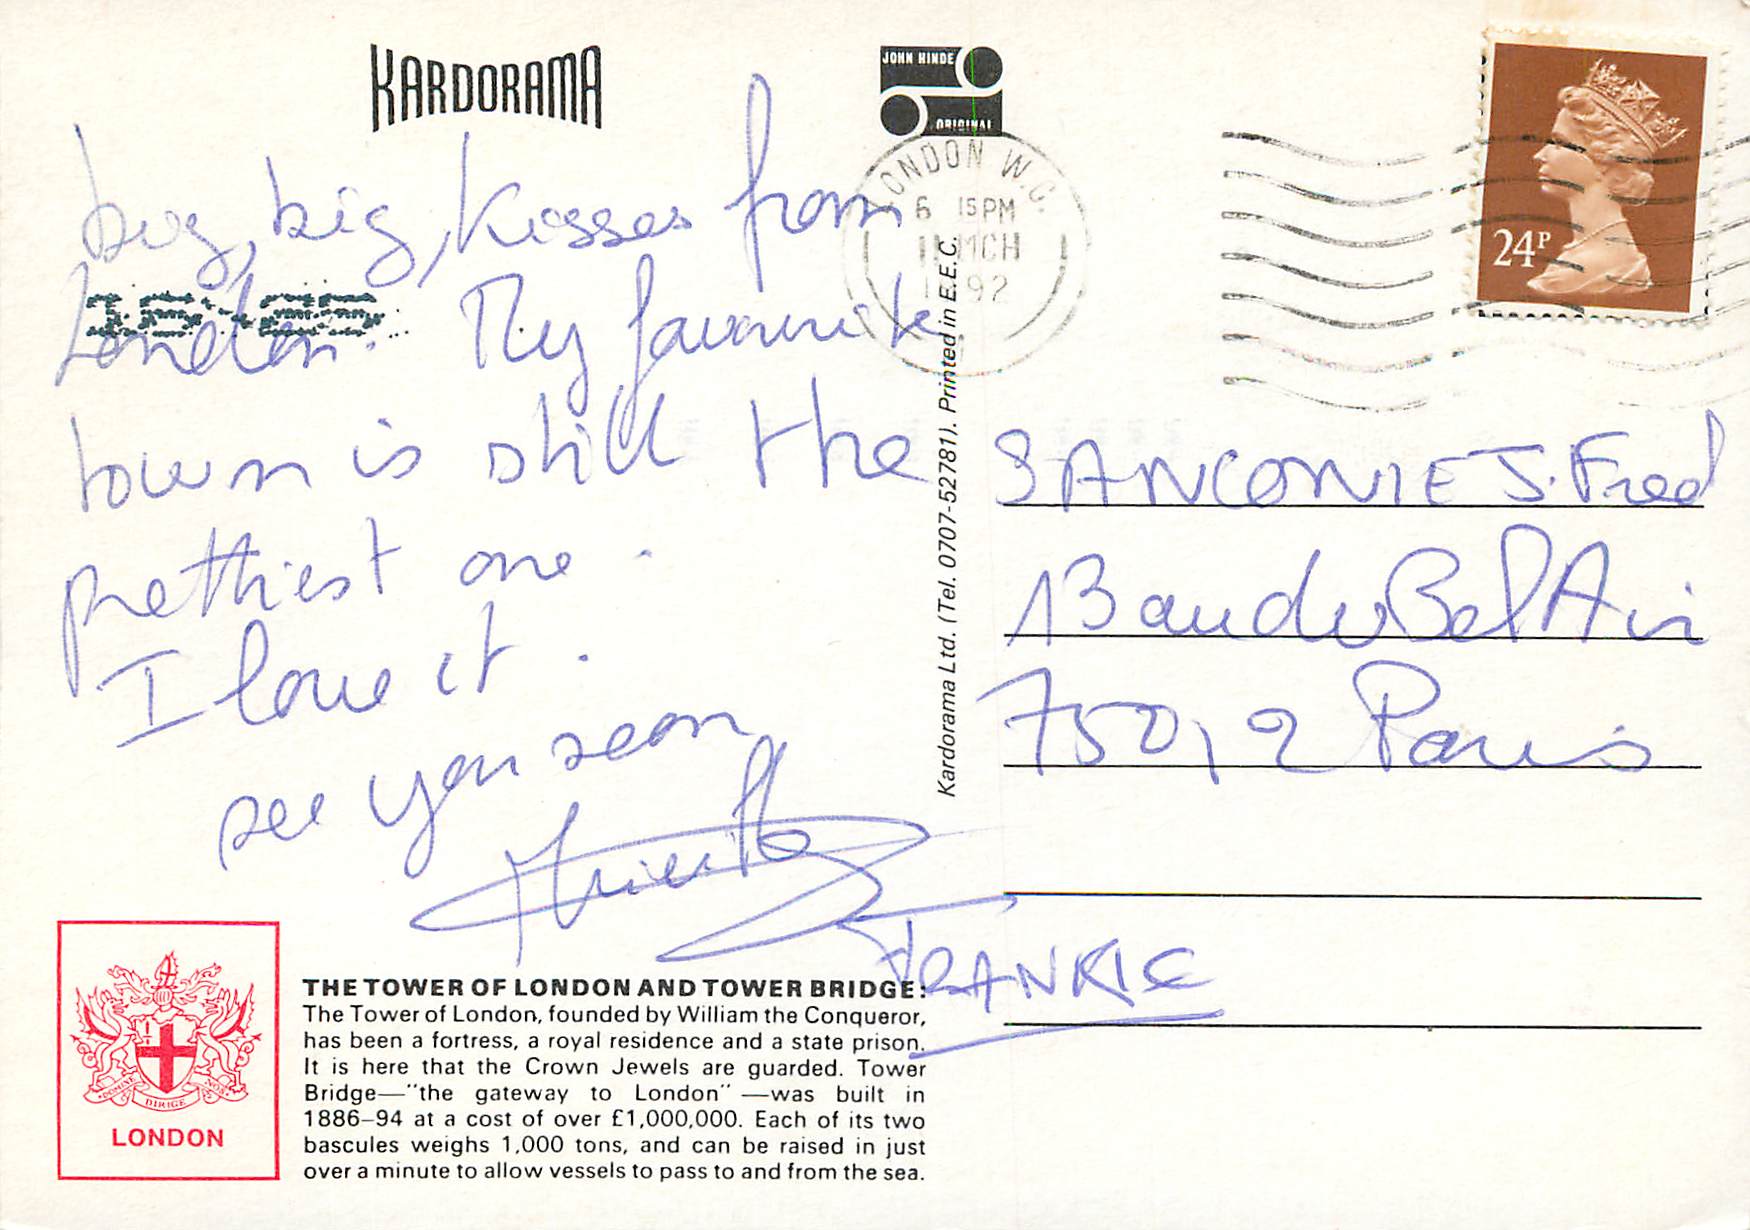 KARDORAMA
JOHN HINDE
ORIGINAL
LONDON W.C.
6 15PM
11 MCH
1992
24P
big, big, kisses from
London. My favourite
town is still the
prettiest one.
I love it.
see you soon
FRANKIE
SANCONIE J. Fred
13 au du Bel Air
75012 Paris
Kardorama Ltd. (Tel. 0707-527781). Printed in E.E.C.
DOMINE DIRIGE NOS
LONDON
THE TOWER OF LONDON AND TOWER BRIDGE:
The Tower of London, founded by William the Conqueror,
has been a fortress, a royal residence and a state prison.
It is here that the Crown Jewels are guarded. Tower
Bridge—"the gateway to London" —was built in
1886–94 at a cost of over £1,000,000. Each of its two
bascules weighs 1,000 tons, and can be raised in just
over a minute to allow vessels to pass to and from the sea.